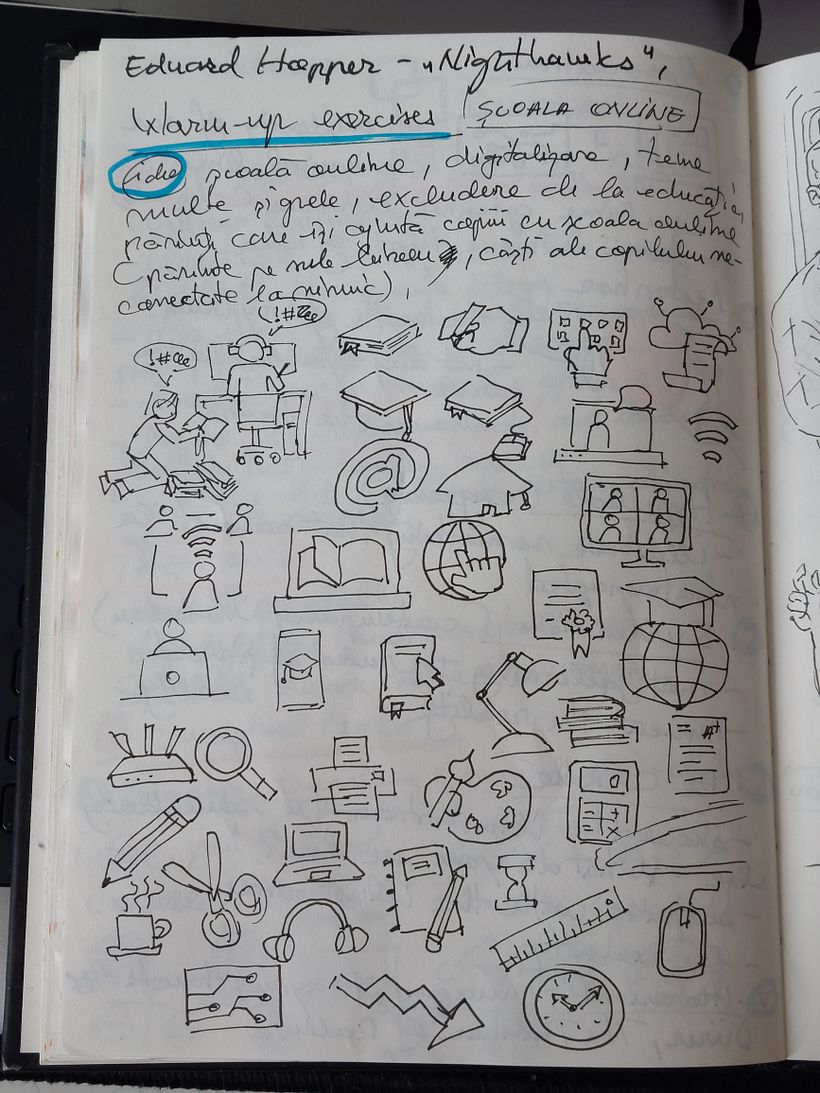 Eduard Hopper - „Nighthawks",
Warm-up exercises ȘCOALA ONLINE
idei școală online, digitalizare, teme
multe și grele, excludere de la educație,
părinți care își ajută copiii cu școala online
(părinte pe sub birou, căști ale copilului ne-
conectate la nimic),
!#@
!#@
@
A+